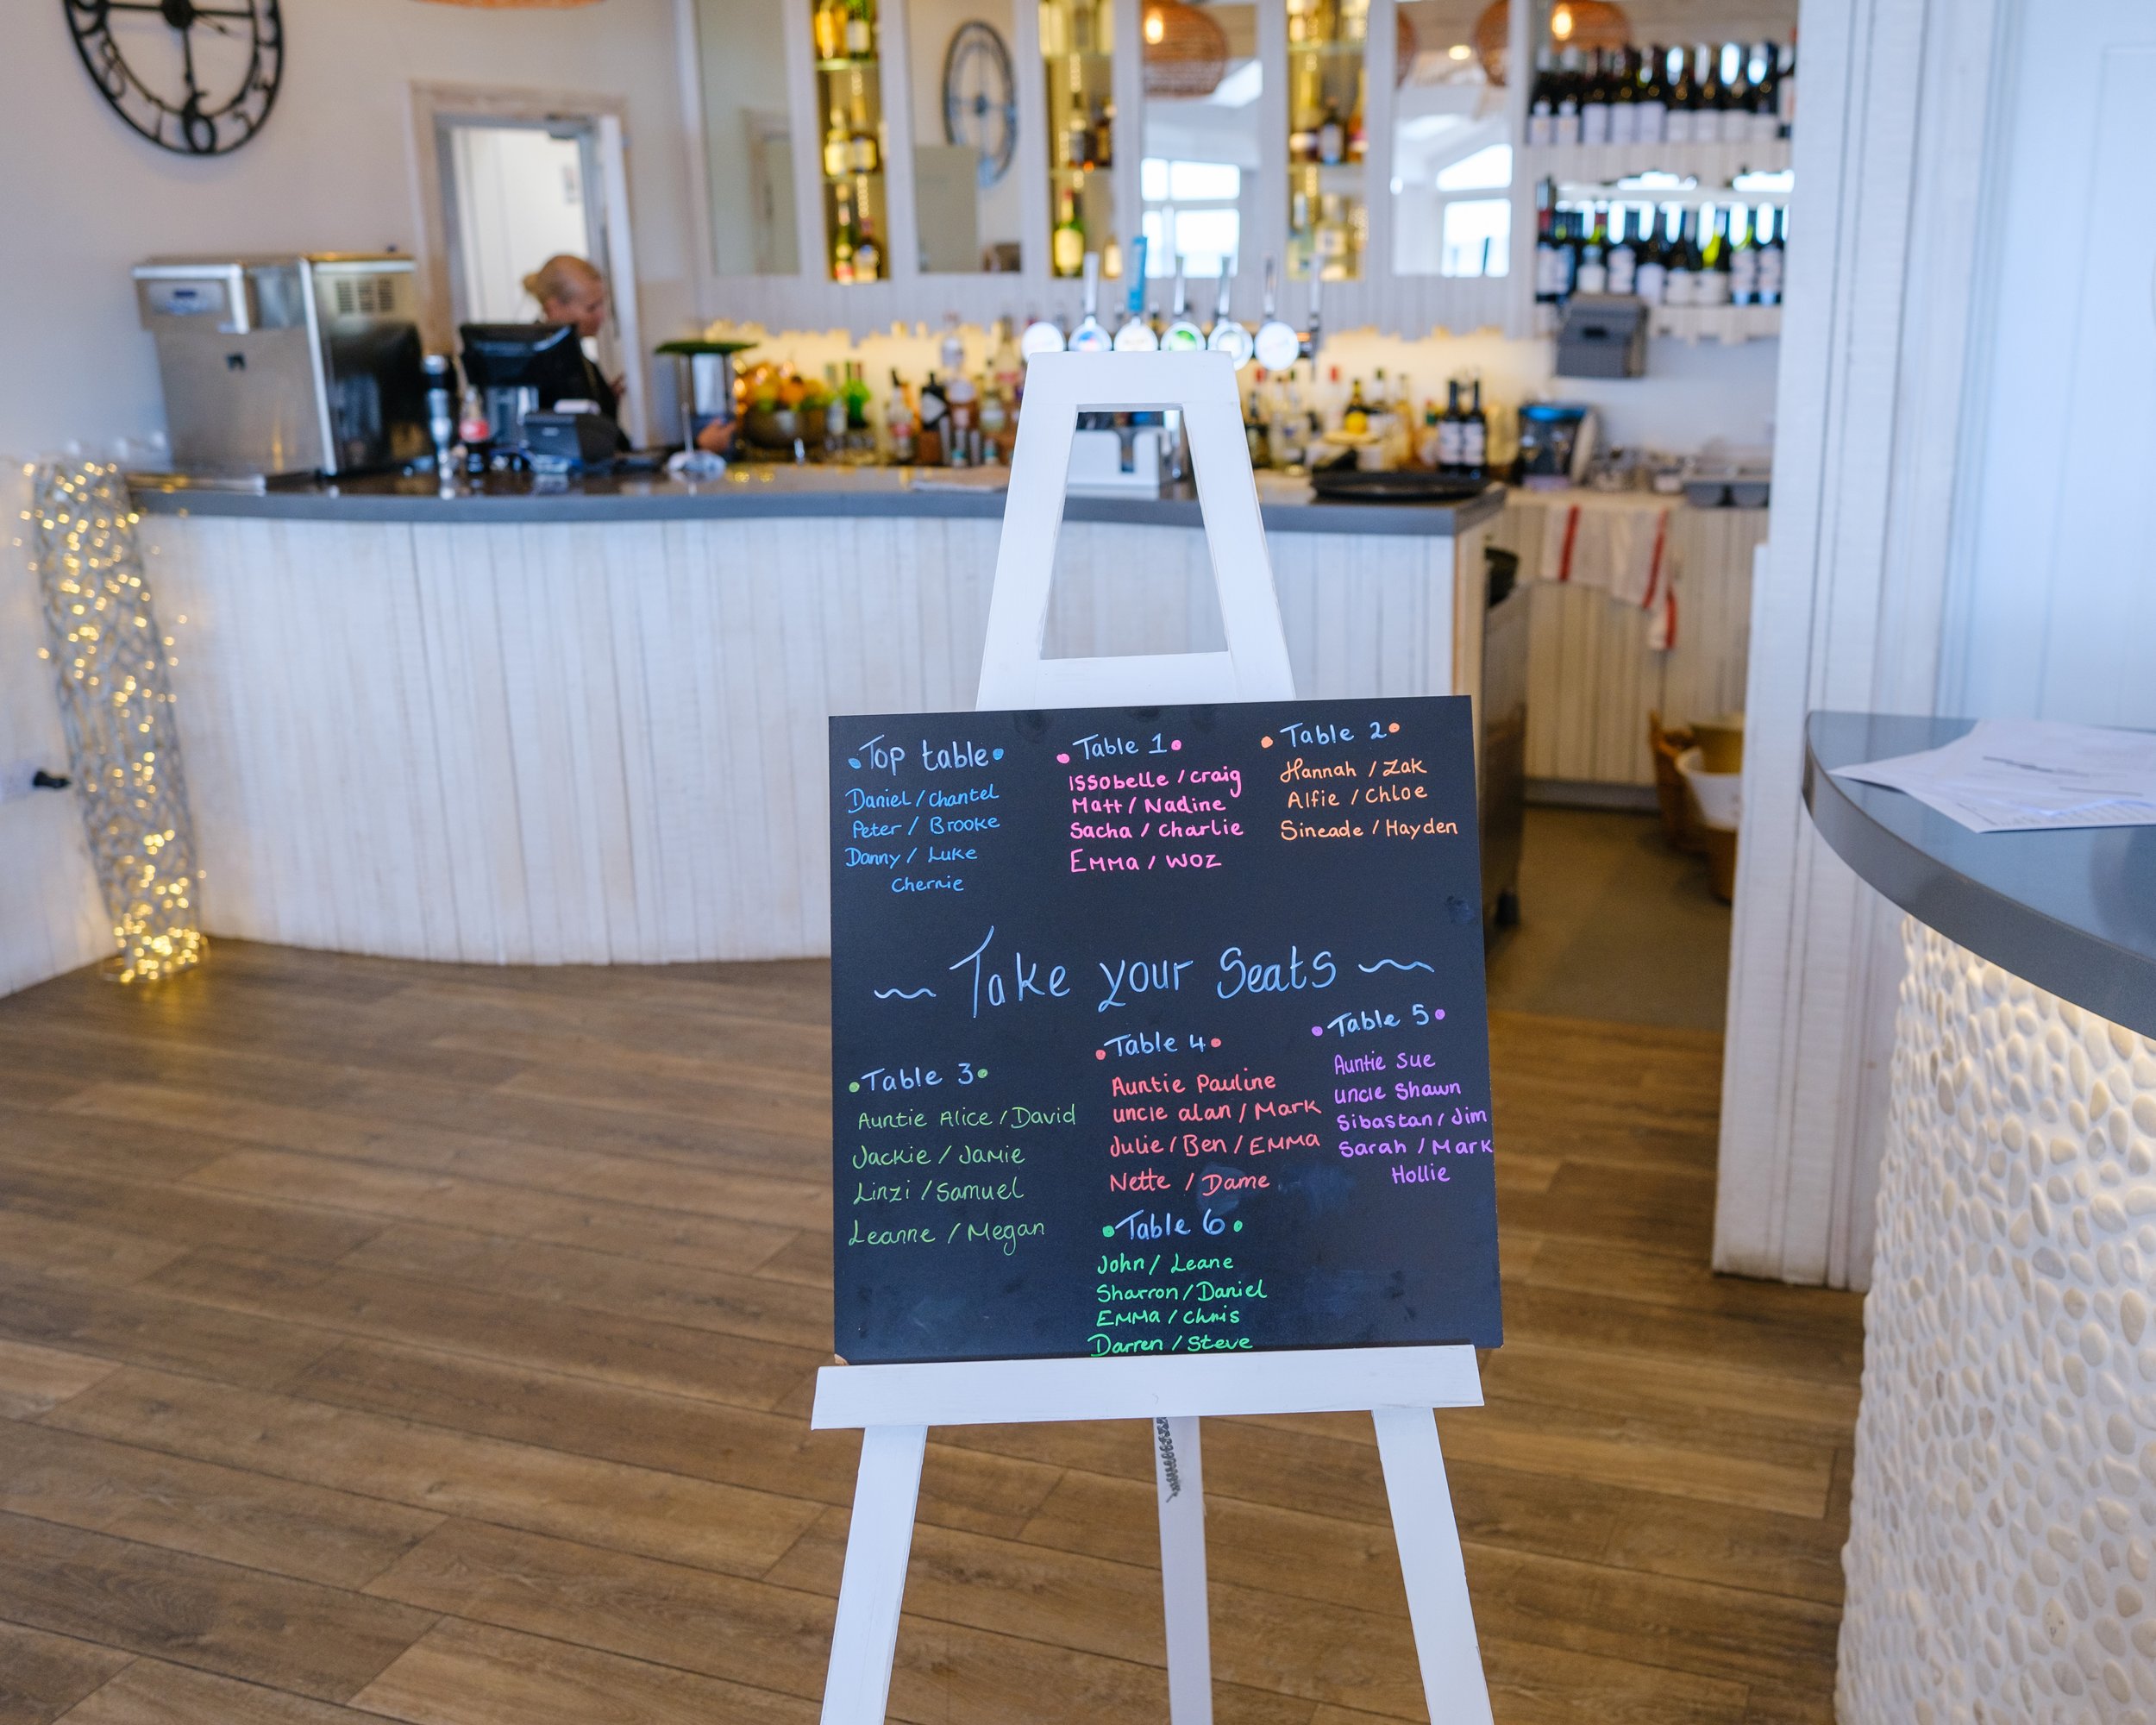 Top table
Daniel / chantel
Peter / Brooke
Danny / Luke
Cherrie
Table 1
Issobelle / craig
Matt / Nadine
Sacha / charlie
Emma / woz
Table 2
Hannah / Zak
Alfie / Chloe
Sineade / Hayden
~ Take your Seats ~
Table 3
Auntie Alice / David
Jackie / Jamie
Linzi / Samuel
Leanne / Megan
Table 4
Auntie Pauline
uncle alan / Mark
Julie / Ben / Emma
Nette / Dame
Table 5
Auntie Sue
uncle Shawn
Sibastan / Jim
Sarah / Mark
Hollie
Table 6
John / Leane
Sharron / Daniel
Emma / Chris
Darren / Steve